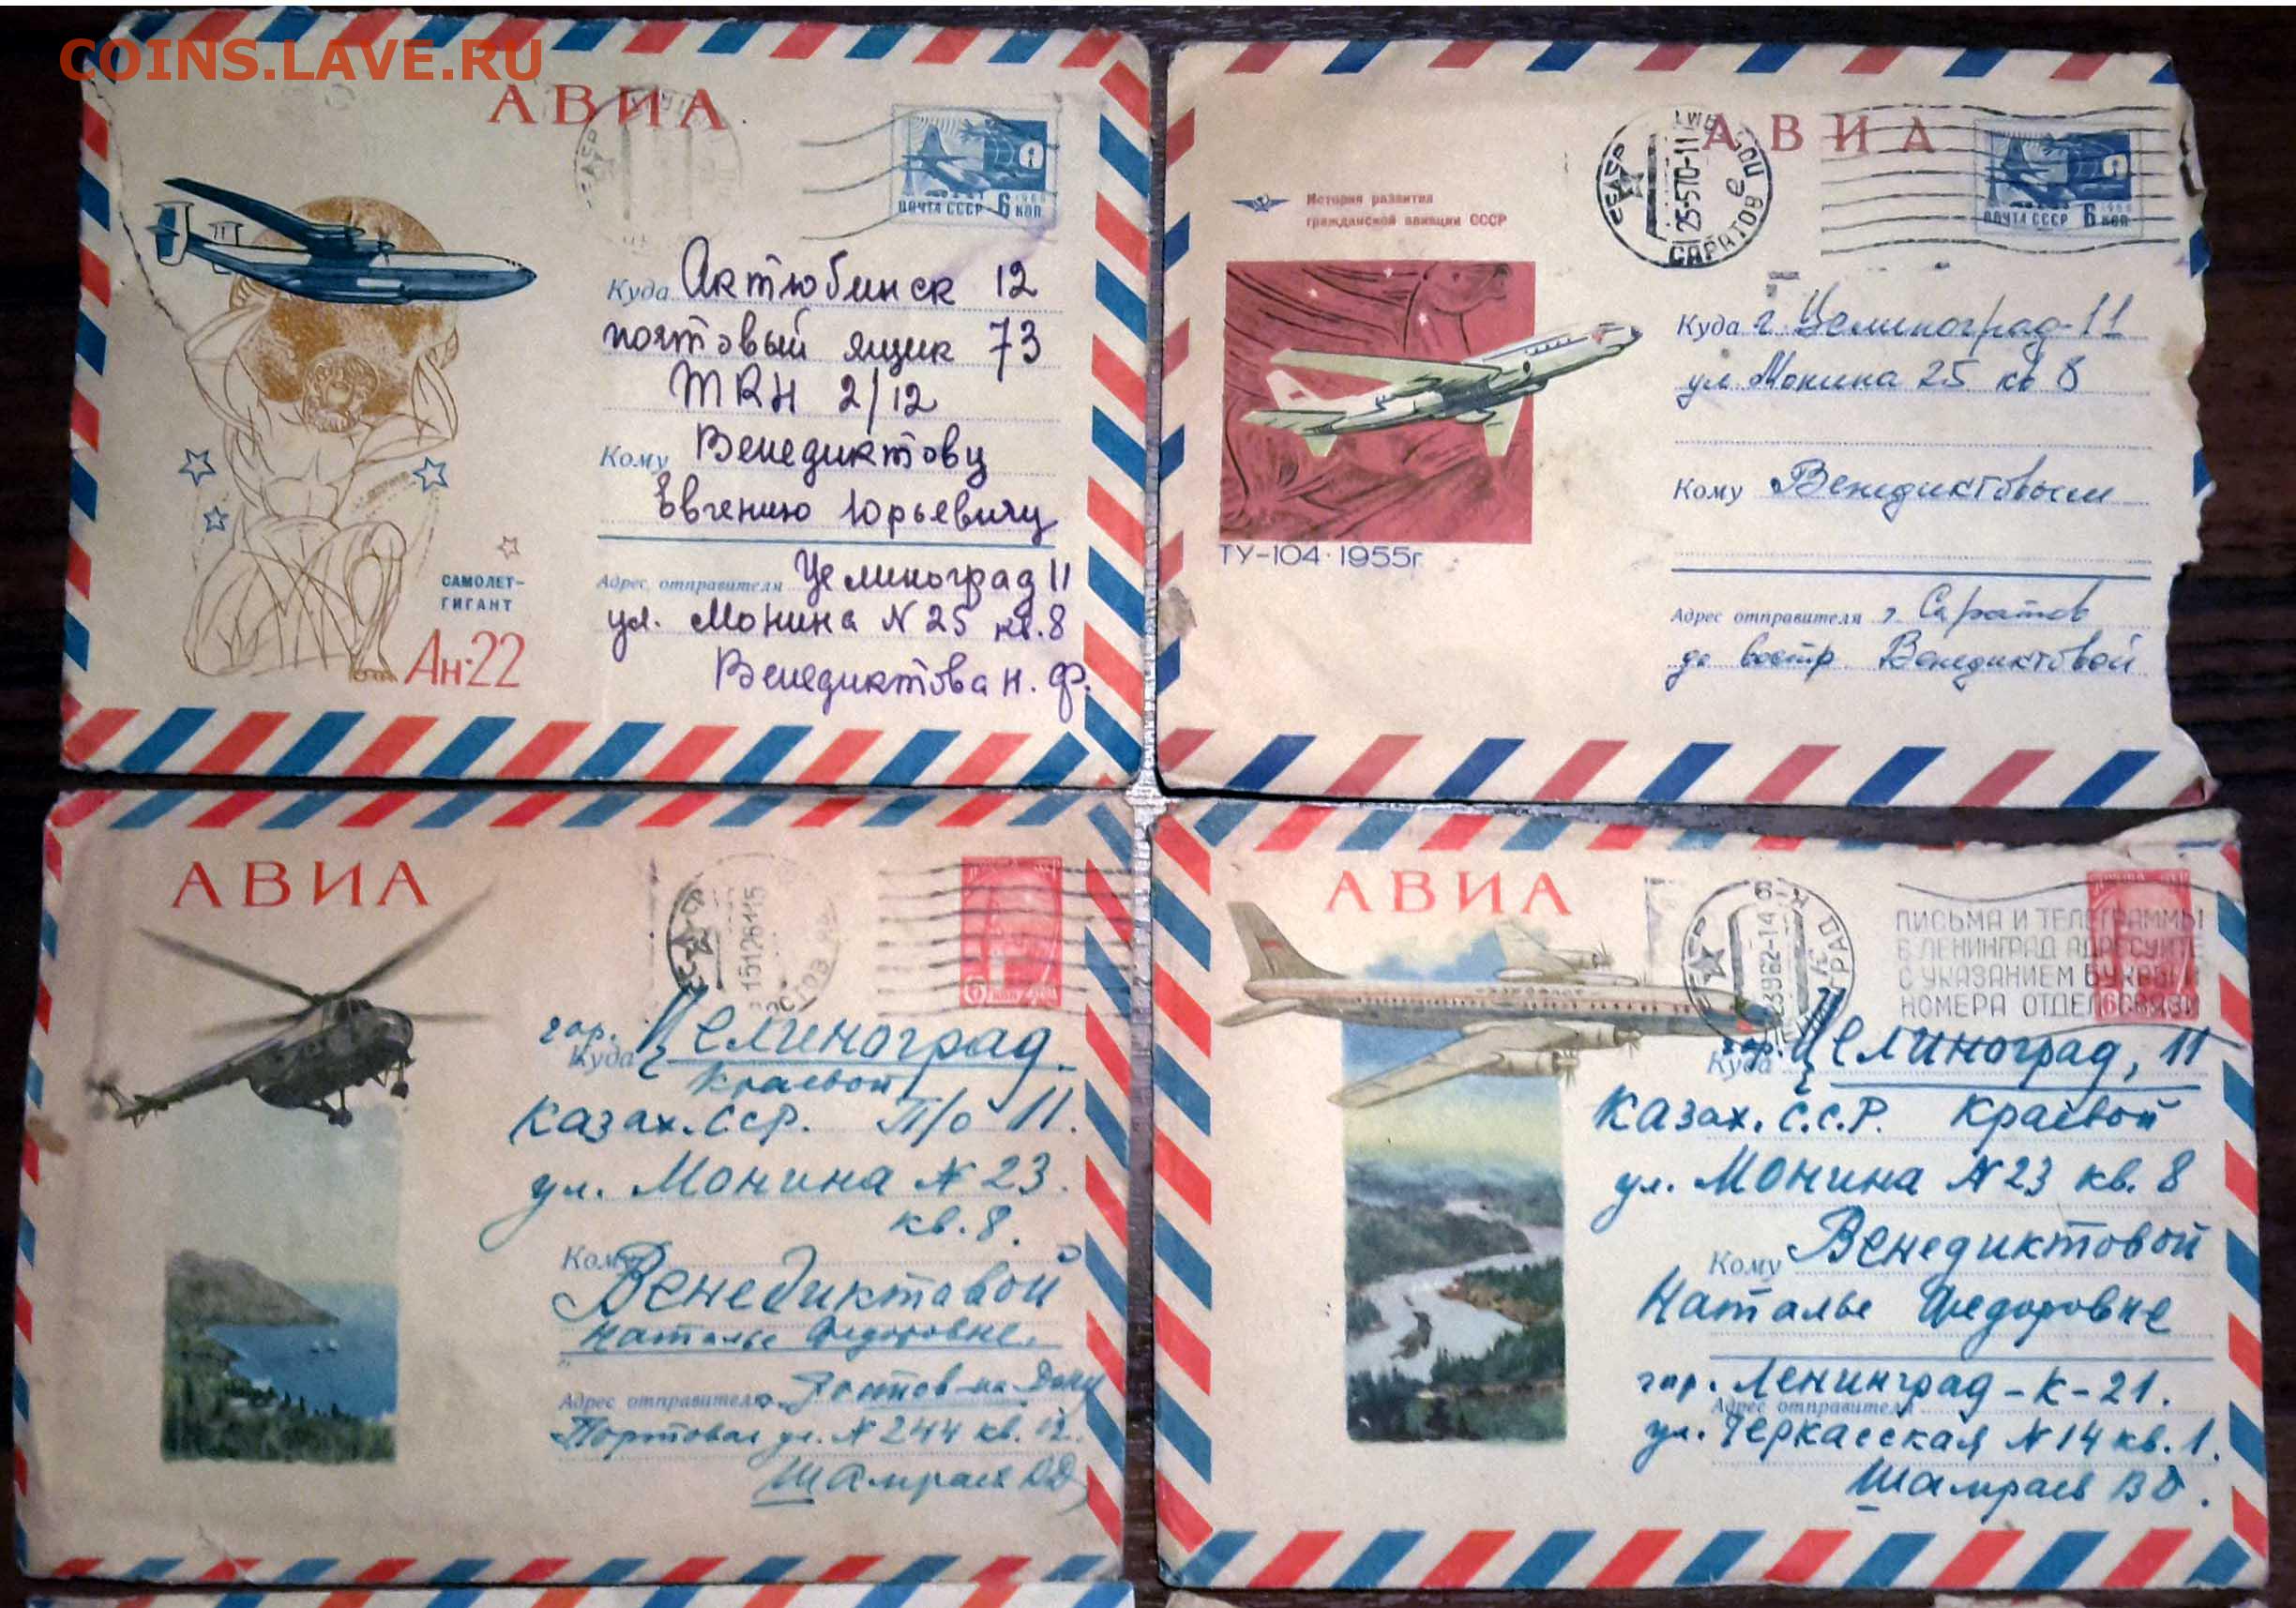 COINS.LAVE.RU
АВИА
ПОЧТА СССР 6 КОП
Куда Актюбинск 12
почтовый ящик 73
2/12
Кому Венедиктову
Евгению Юрьевичу
Адрес отправителя Целиноград 11
ул. Монина N 25 кв. 8
Венедиктова Н. Ф.
САМОЛЕТ-
ГИГАНТ
Ан-22
АВИА
СССР
25-570-11
САРАТОВ
ПОЧТА СССР 6 КОП
История развития
гражданской авиации СССР
ТУ-104·1955г
Куда г. Целиноград-11
ул Монина 25 кв 8
Кому Венедиктовым
Адрес отправителя г Саратов
до востр Венедиктовой
АВИА
6
гор. Целиноград
Куда
Краевой
Казах.ССР. П/о 11.
ул. Монина N 23.
кв. 8.
Кому
Венедиктовой
Наталье Федоровне.
Адрес отправителя Ростов-на-Дону
Портовая ул. N 244 кв. 12.
Шамраев
АВИА
СССР
ПИСЬМА И ТЕЛЕГРАММЫ
В ЛЕНИНГРАД АДРЕСУЙТЕ
С УКАЗАНИЕМ БУКВЫ И
НОМЕРА ОТДЕЛ СВЯЗИ
гор. Целиноград, 11
Куда
Казах. С.С.Р. Краевой
ул. Монина N 23 кв. 8
Кому Венедиктовой
Наталье Федоровне
гор. Ленинград-К-21.
Адрес отправителя
ул. Черкасская N 14 кв. 1.
Шамраев